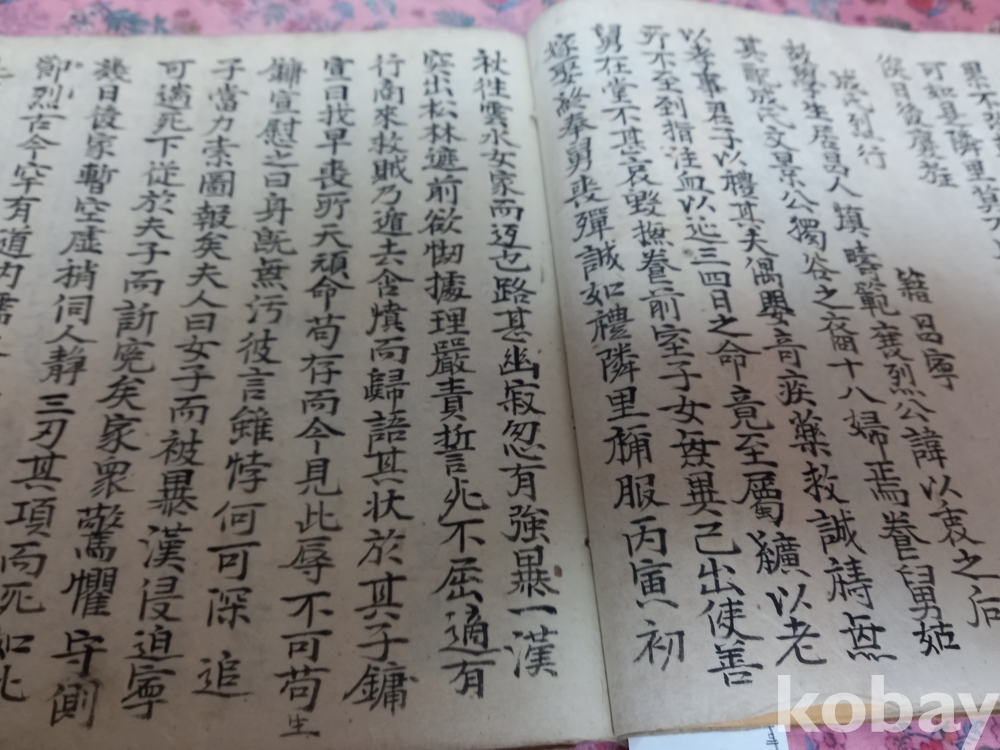 可和縣隣里莫不
後日後慶莚
成氏列行 籍昌寧
故學生居昌人填疇範襄烈公諱以衷之后
其配成氏文景公獨谷之裔爾十八婦焉養舅姑
以孝事君子以禮其夫偶嬰奇疾藥救誠禱無
所不至到指注血以延三四日之命竟至屬纊以老
舅在堂不甚哀毀撫養前室子女無異己出使善
嫁娶終奉舅喪殫誠如禮隣里稱服丙寅初
秋往雲水女家而返也路甚幽寂忽有強暴一漢
突出松林遮前欲刼據理嚴責誓死不屈適有
行商來救賊乃遁去含憤而歸語其状於其子鏞
宣曰我早喪所天頑命苟存而今見此辱不可苟生
鏞宣慰之曰身旣無污彼言雖悖何可深追
子當力索圖報矣夫人曰女子而被暴漢侵迫寧
可遄死下從於夫子而訴寃矣家眾驚懼守側
幾日後家暫空虛稍伺人靜三刃其項而死如此
節烈古今罕有道內儒
kobay